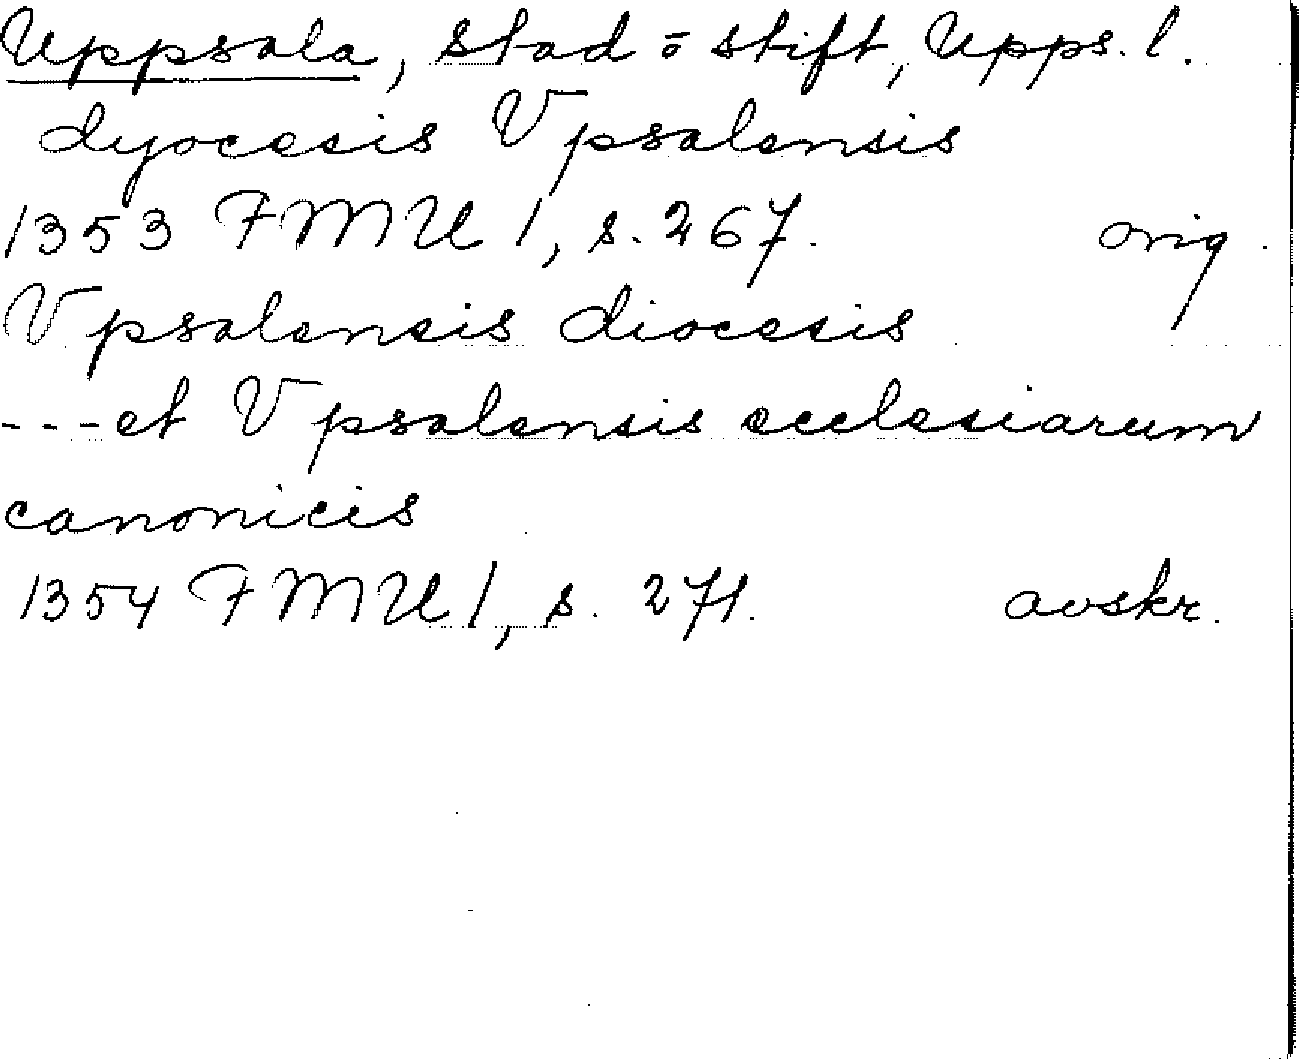 Uppsala, stad o stift, Upps. l.
dyocesis Vpsalensis
1353 FMU 1, s. 267. orig.
Vpsalensis diocesis
---et Vpsalensis ecclesiarum
canonicis
1354 FMU 1, s. 271. avskr.